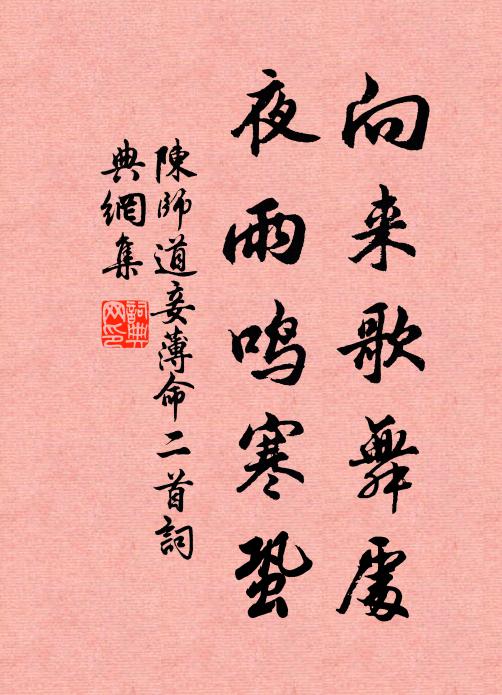 向来歌舞處
夜雨鸣寒蛩
陳師道妾薄命二首詞
典網集
詞典
网印